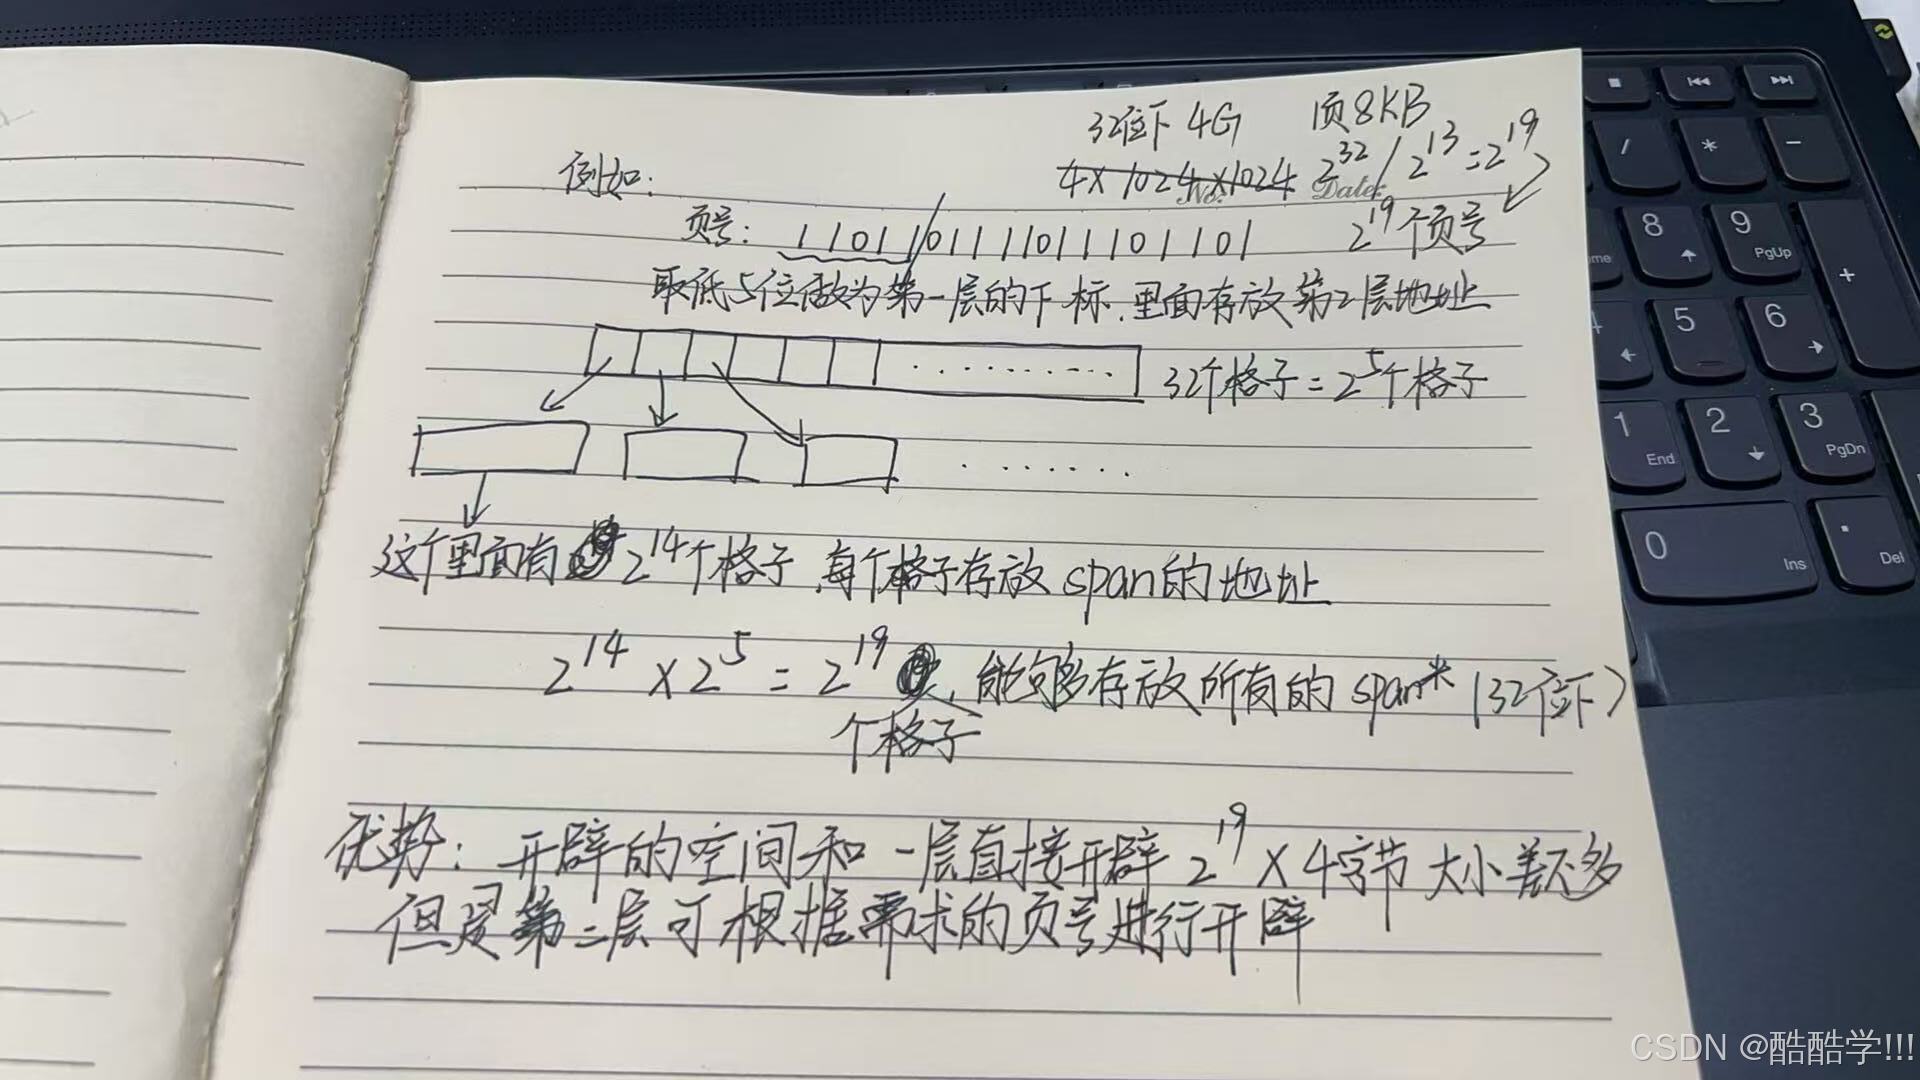 32位下 4G 页8KB
例如: 4×1024×1024 2^32 / 2^13 = 2^19
No. Date
页号: 1101101111011101101 2^19个页号
取低5位做为第一层的下标,里面存放第2层地址
32个格子 = 2^5个格子
这个里面有 2^14个格子,每个格子存放span的地址
2^14 × 2^5 = 2^19 个格子,能够多存放所有的span*(32位下)
优势: 开辟的空间和一层直接开辟 2^19 × 4字节 大小差不多
但是第二层可根据需求的页号进行开辟
/
*
-
8
9
PgUp
+
me
4
5
6
1
End
2
3
PgDn
0
Ins
.
Del
CSDN @酷酷学!!!